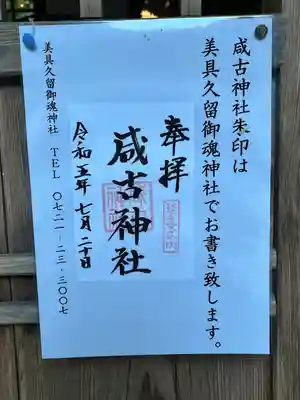 咸古神社朱印は
美具久留御魂神社でお書き致します。
奉拝
咸古神社
令和五年七月二十日
美具久留御魂神社 TEL 〇七二一-二三・三〇〇七